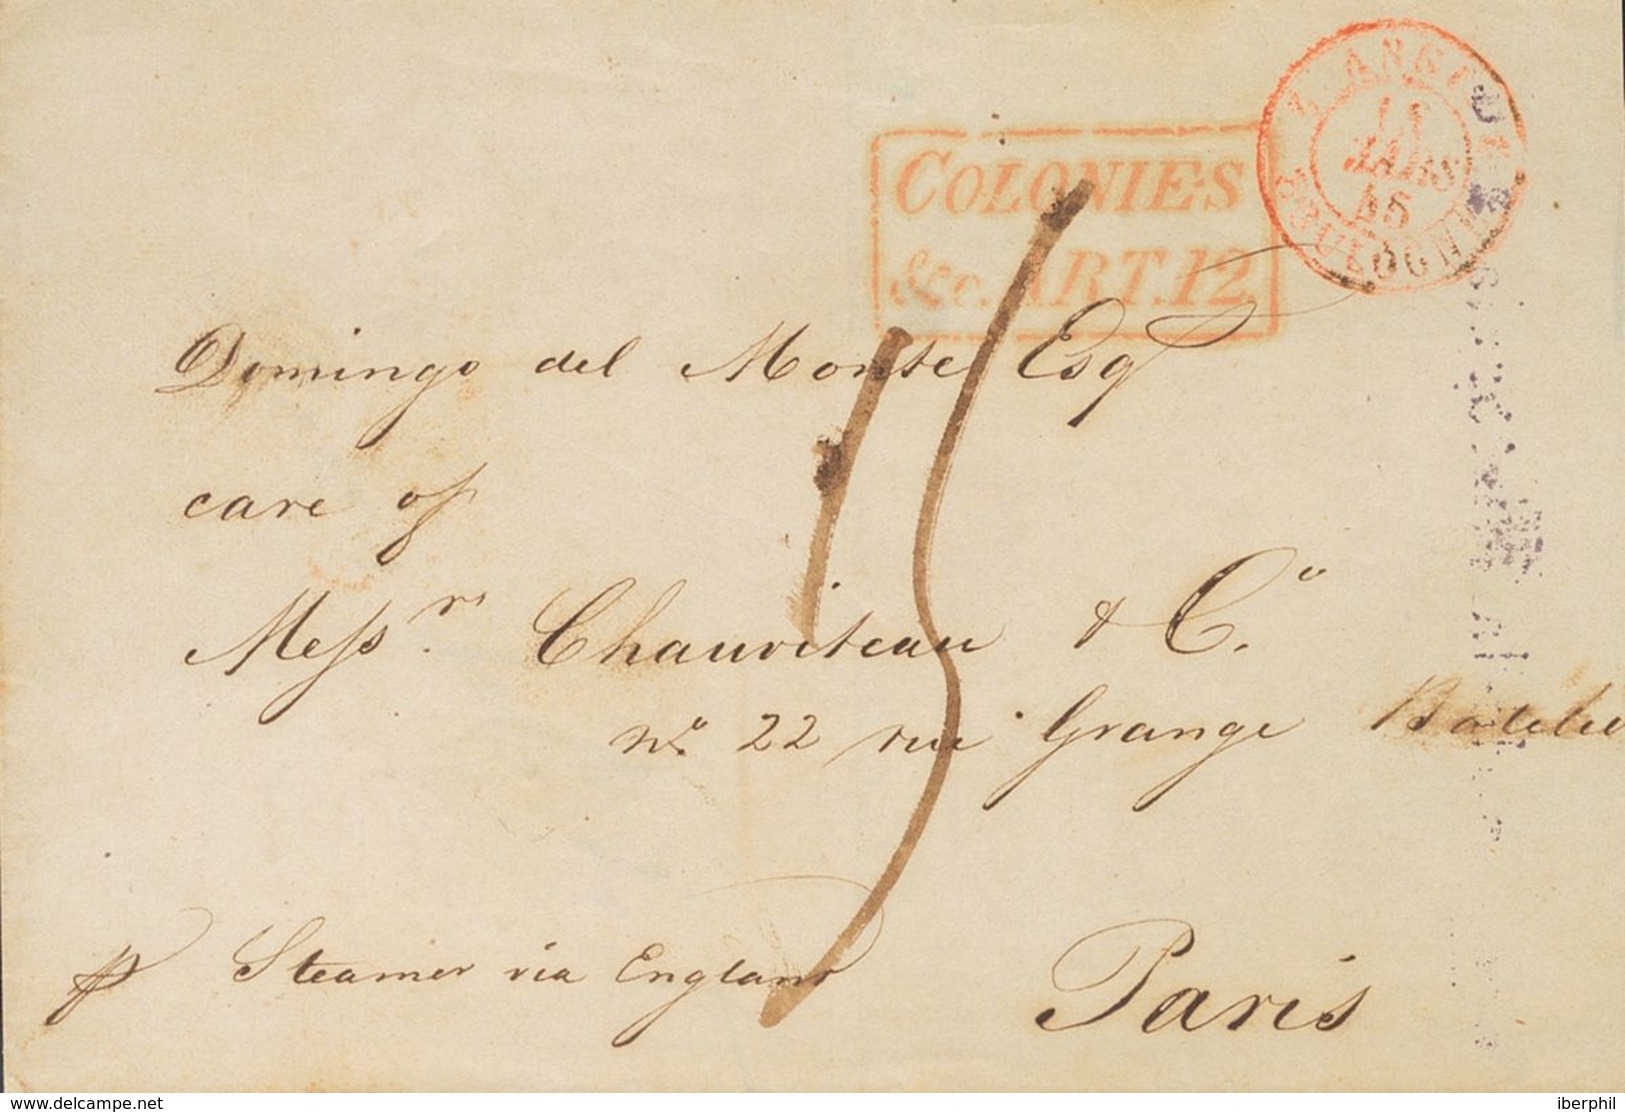 COLONIES
&c. ART. 12.
ANGL
BOULOGNE
MARS
45
15
Domingo del Monte Esqr
care of
Messrs. Chauviteau & Co.
No. 22 rue Grange Batelie
p Steamer via England
Paris
www.delcampe.net
iberphil